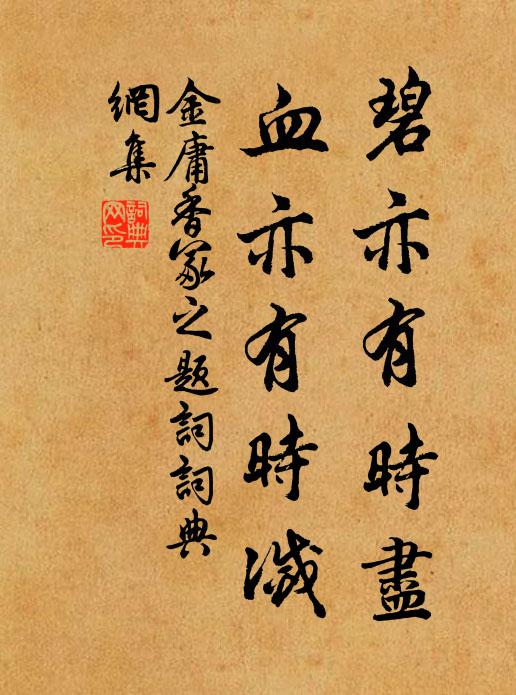 碧亦有時盡
血亦有時滅
金庸香冢之題詞詞典
網集
詞典
网印